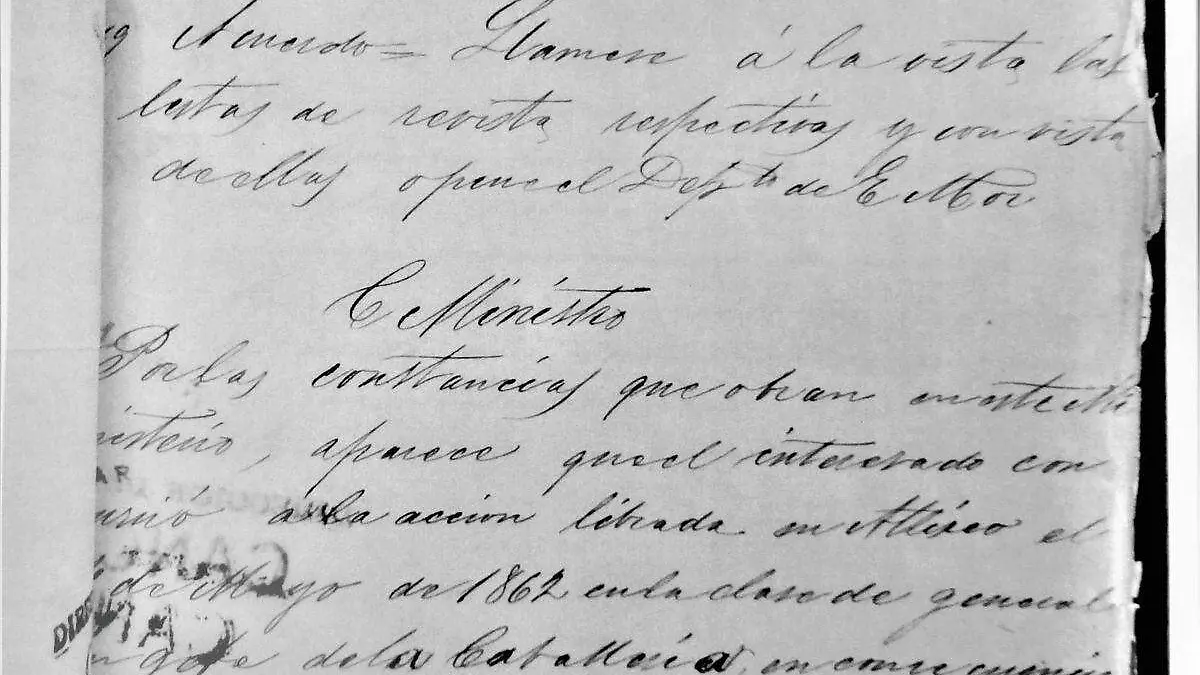 Acuerdo= Llamese á la vista las
listas de revista respectivas y con vista
de ellas opine el Depto de E Mor
C Ministro
Por las constancias que obran en este Mi
nisterio, aparece que el interesado con
currió a la accion librada en Atlixco el
de Mayo de 1862 en la clase de general
en gefe de la Caballeria, en consecuencia